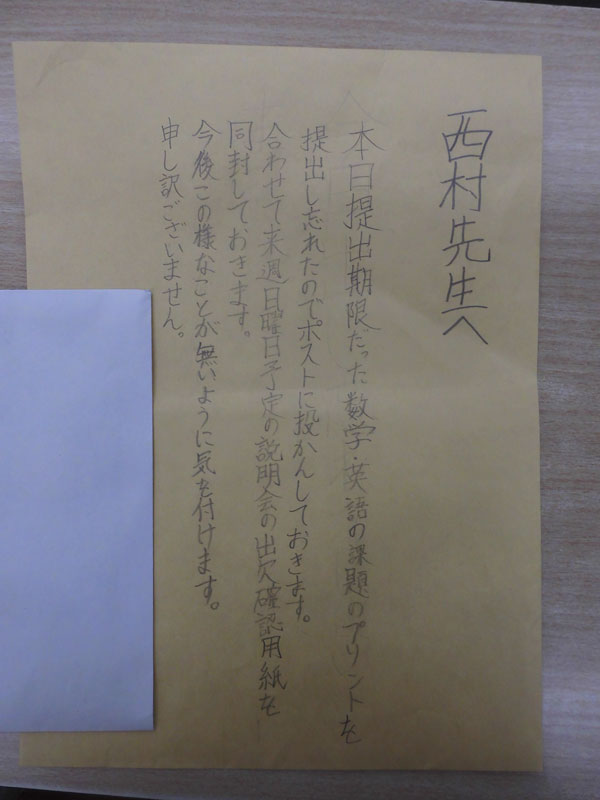 西村先生へ
本日提出期限だった数学・英語の課題のプリントを
提出し忘れたのでポストに投かんしておきます。
合わせて、来週日曜日予定の説明会の出欠確認用紙を
同封しておきます。
今後この様なことが無いように気を付けます。
申し訳ございません。